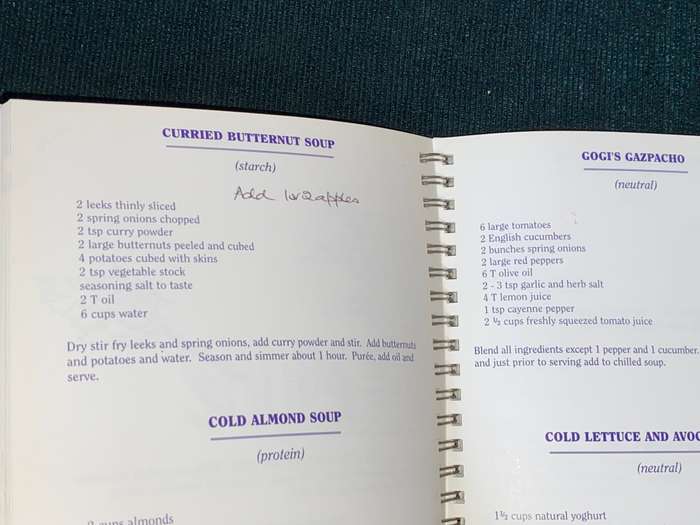 CURRIED BUTTERNUT SOUP
(starch)
Add 1or2apples
2 leeks thinly sliced
2 spring onions chopped
2 tsp curry powder
2 large butternuts peeled and cubed
4 potatoes cubed with skins
2 tsp vegetable stock
seasoning salt to taste
2 T oil
6 cups water
Dry stir fry leeks and spring onions, add curry powder and stir. Add butternuts
and potatoes and water. Season and simmer about 1 hour. Purée, add oil and
serve.
COLD ALMOND SOUP
(protein)
2 cups almonds
GOGI'S GAZPACHO
(neutral)
6 large tomatoes
2 English cucumbers
2 bunches spring onions
2 large red peppers
6 T olive oil
2 - 3 tsp garlic and herb salt
4 T lemon juice
1 tsp cayenne pepper
2 ½ cups freshly squeezed tomato juice
Blend all ingredients except 1 pepper and 1 cucumber.
and just prior to serving add to chilled soup.
COLD LETTUCE AND AVOC
(neutral)
1½ cups natural yoghurt